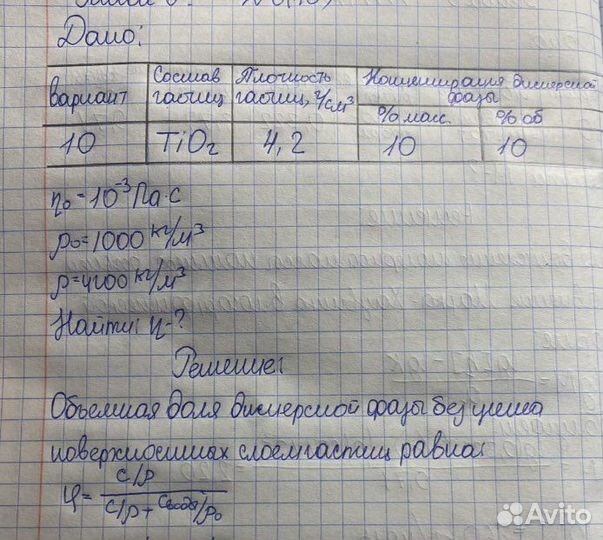 Дано:
Вариант
Состав частиц
Плотность частиц, г/см³
Концентрация дисперсной фазы
% масс.
% об
10
TiO₂
4,2
10
10
η₀=10⁻³ Па·с
ρ₀=1000 кг/м³
ρ=4200 кг/м³
Найти: η-?
Решение:
Объемная доля дисперсной фазы без учета
поверхностных слоем частиц равна:
φ = (c/ρ) / (c/ρ + cводы/ρ₀)
Avito